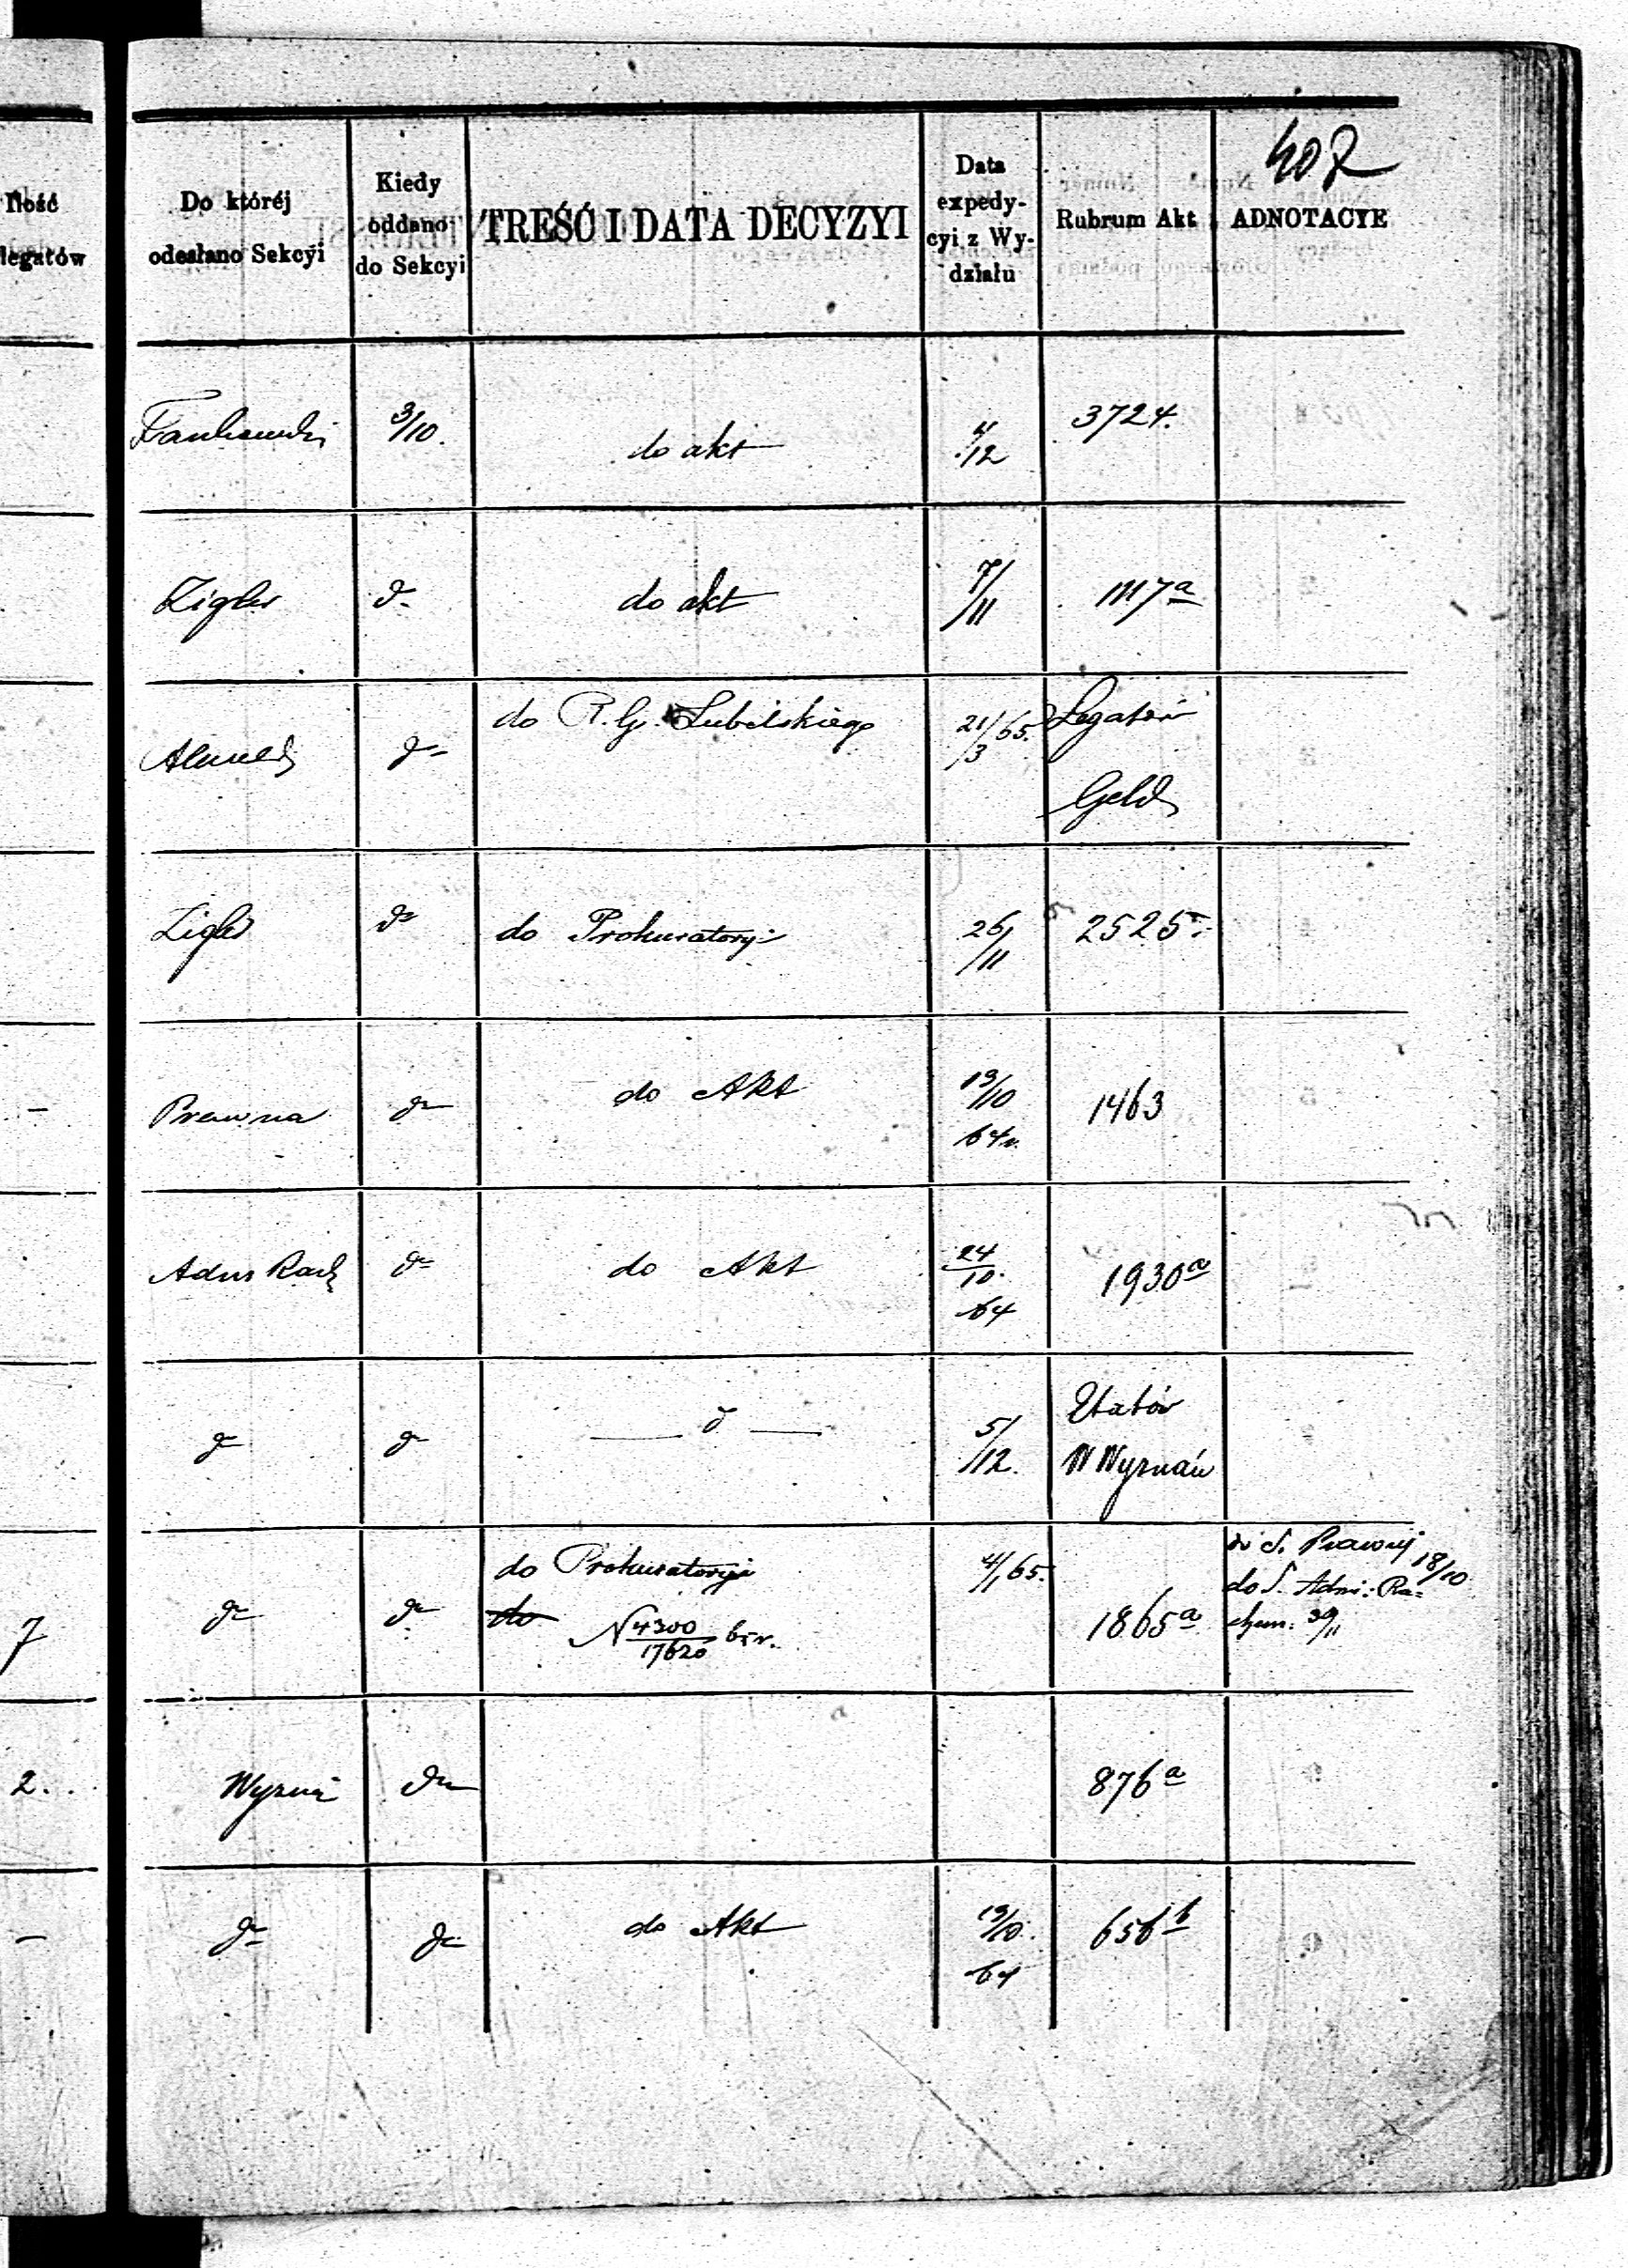 407
Ilość
legatów
Do któréj
odesłano Sekcyi
Kiedy
oddano
do Sekcyi
TREŚĆ I DATA DECYZYI
Data
expedy-
cyi z Wy-
działu
Rubrum Akt
ADNOTACYE
3/10.
do akt
4/12
3724.
Zigler
do
do akt
7/11
1117a
do R. G. Lubelskiego
21/3 65.
Legatów
do
Geld
Zigler
do
do Prokuratoryi
26/11
2525
—
Prawna
do
do Akt
19/10
64 r.
1463
Adm Rach
do
do Akt
24/10.
64
1930a
do
do
— d —
5/12.
Etatów
W Wyznań
7
do
do
do Prokuratoryi
do
N 4300/17620
4/1 65.
1865a
do S. Prawnej 18/10
do S. Adm: Ra=
chun. 30/11
2.
Wyznań
do
876a
—
do
do
do Akt
19/10.
64
656b